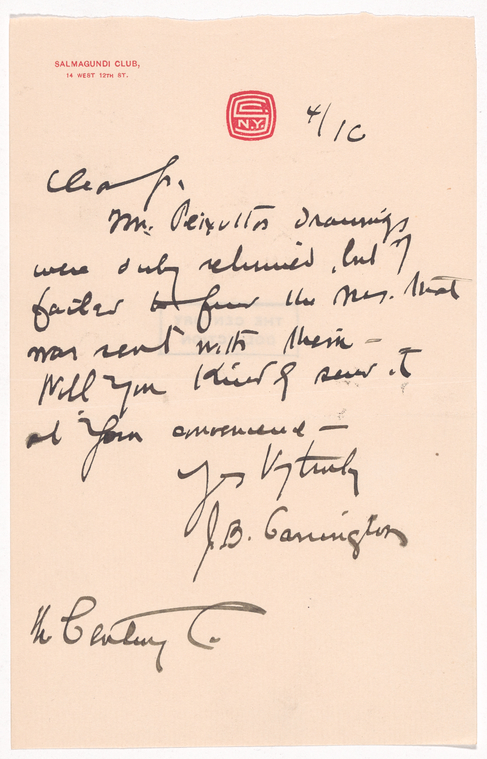 SALMAGUNDI CLUB,
14 WEST 12TH ST.
S.C.
N.Y.
4/10
Dear Sir.
Mr. Peixottos drawings
were duly returned, but I
failed to find the Mss. that
was sent with them –
Will you kindly send it
at your convenience –
Yrs Vy truly
J.B. Carrington
The Century Co.